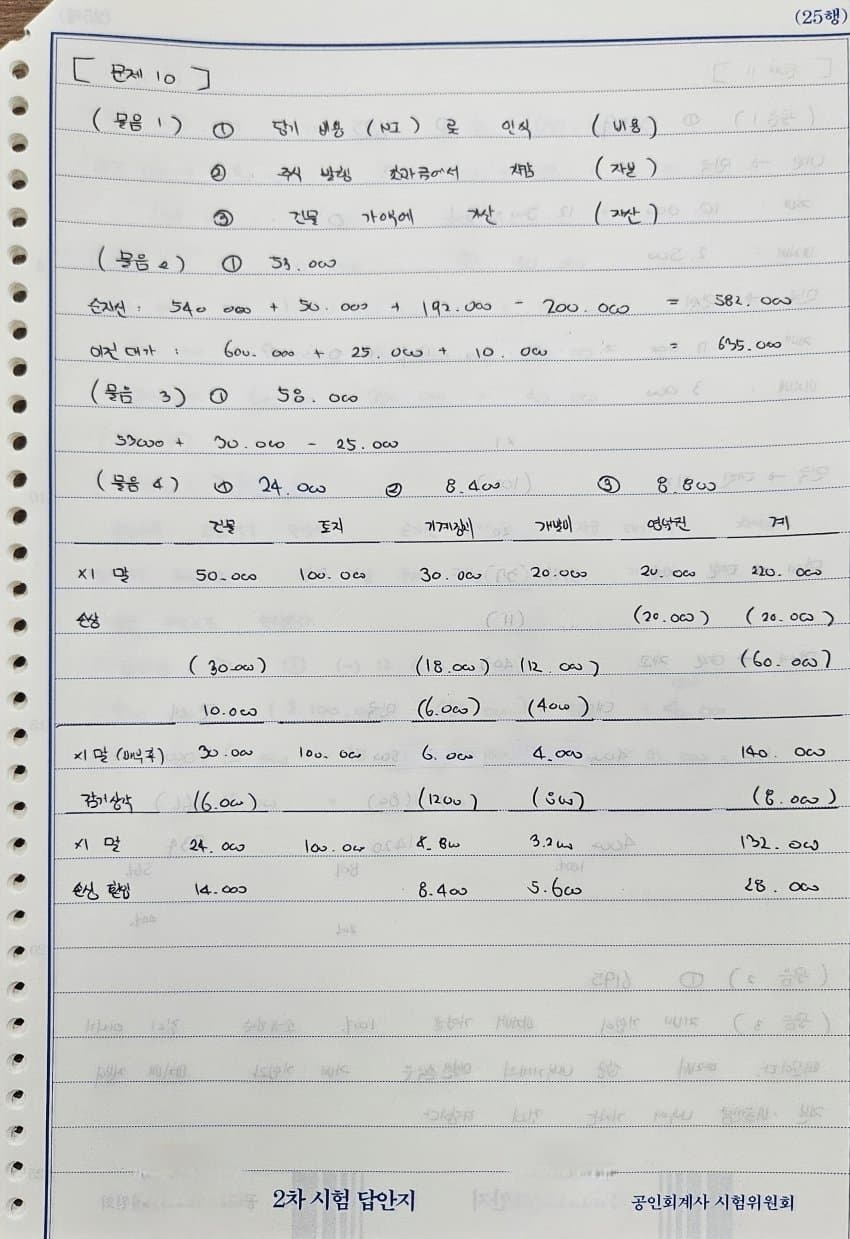 (25행)
[ 문제 10 ]
(물음 1) ① 당기 비용 (NI)로 인식 (비용)
② 주식 발행 초과금에서 차감 (자본)
③ 건물 가액에 가산 (자산)
(물음 2) ① 53.000
순자산 : 540 000 + 50.000 + 192.000 - 200.000 = 582.000
이전대가 : 600.000 + 25.000 + 10.000 = 635.000
(물음 3) ① 58.000
53000 + 30.000 - 25.000
(물음 4) ① 24.000 ② 8.400 ③ 8.800
건물 토지 기계장치 개발비 영업권 계
X1 말 50.000 100.000 30.000 20.000 20.000 220.000
손상 (20.000) (20.000)
(30.000) (18.000) (12.000) (60.000)
10.000 (6.000) (4000)
X1 말 (배부후) 30.000 100.000 6.000 4.000 140.000
감가상각 (6.000) (1200) (800) (8.000)
X1 말 24.000 100.000 4.800 3.200 132.000
손상 환입 14.000 8.400 5.600 28.000
2차 시험 답안지
공인회계사 시험위원회